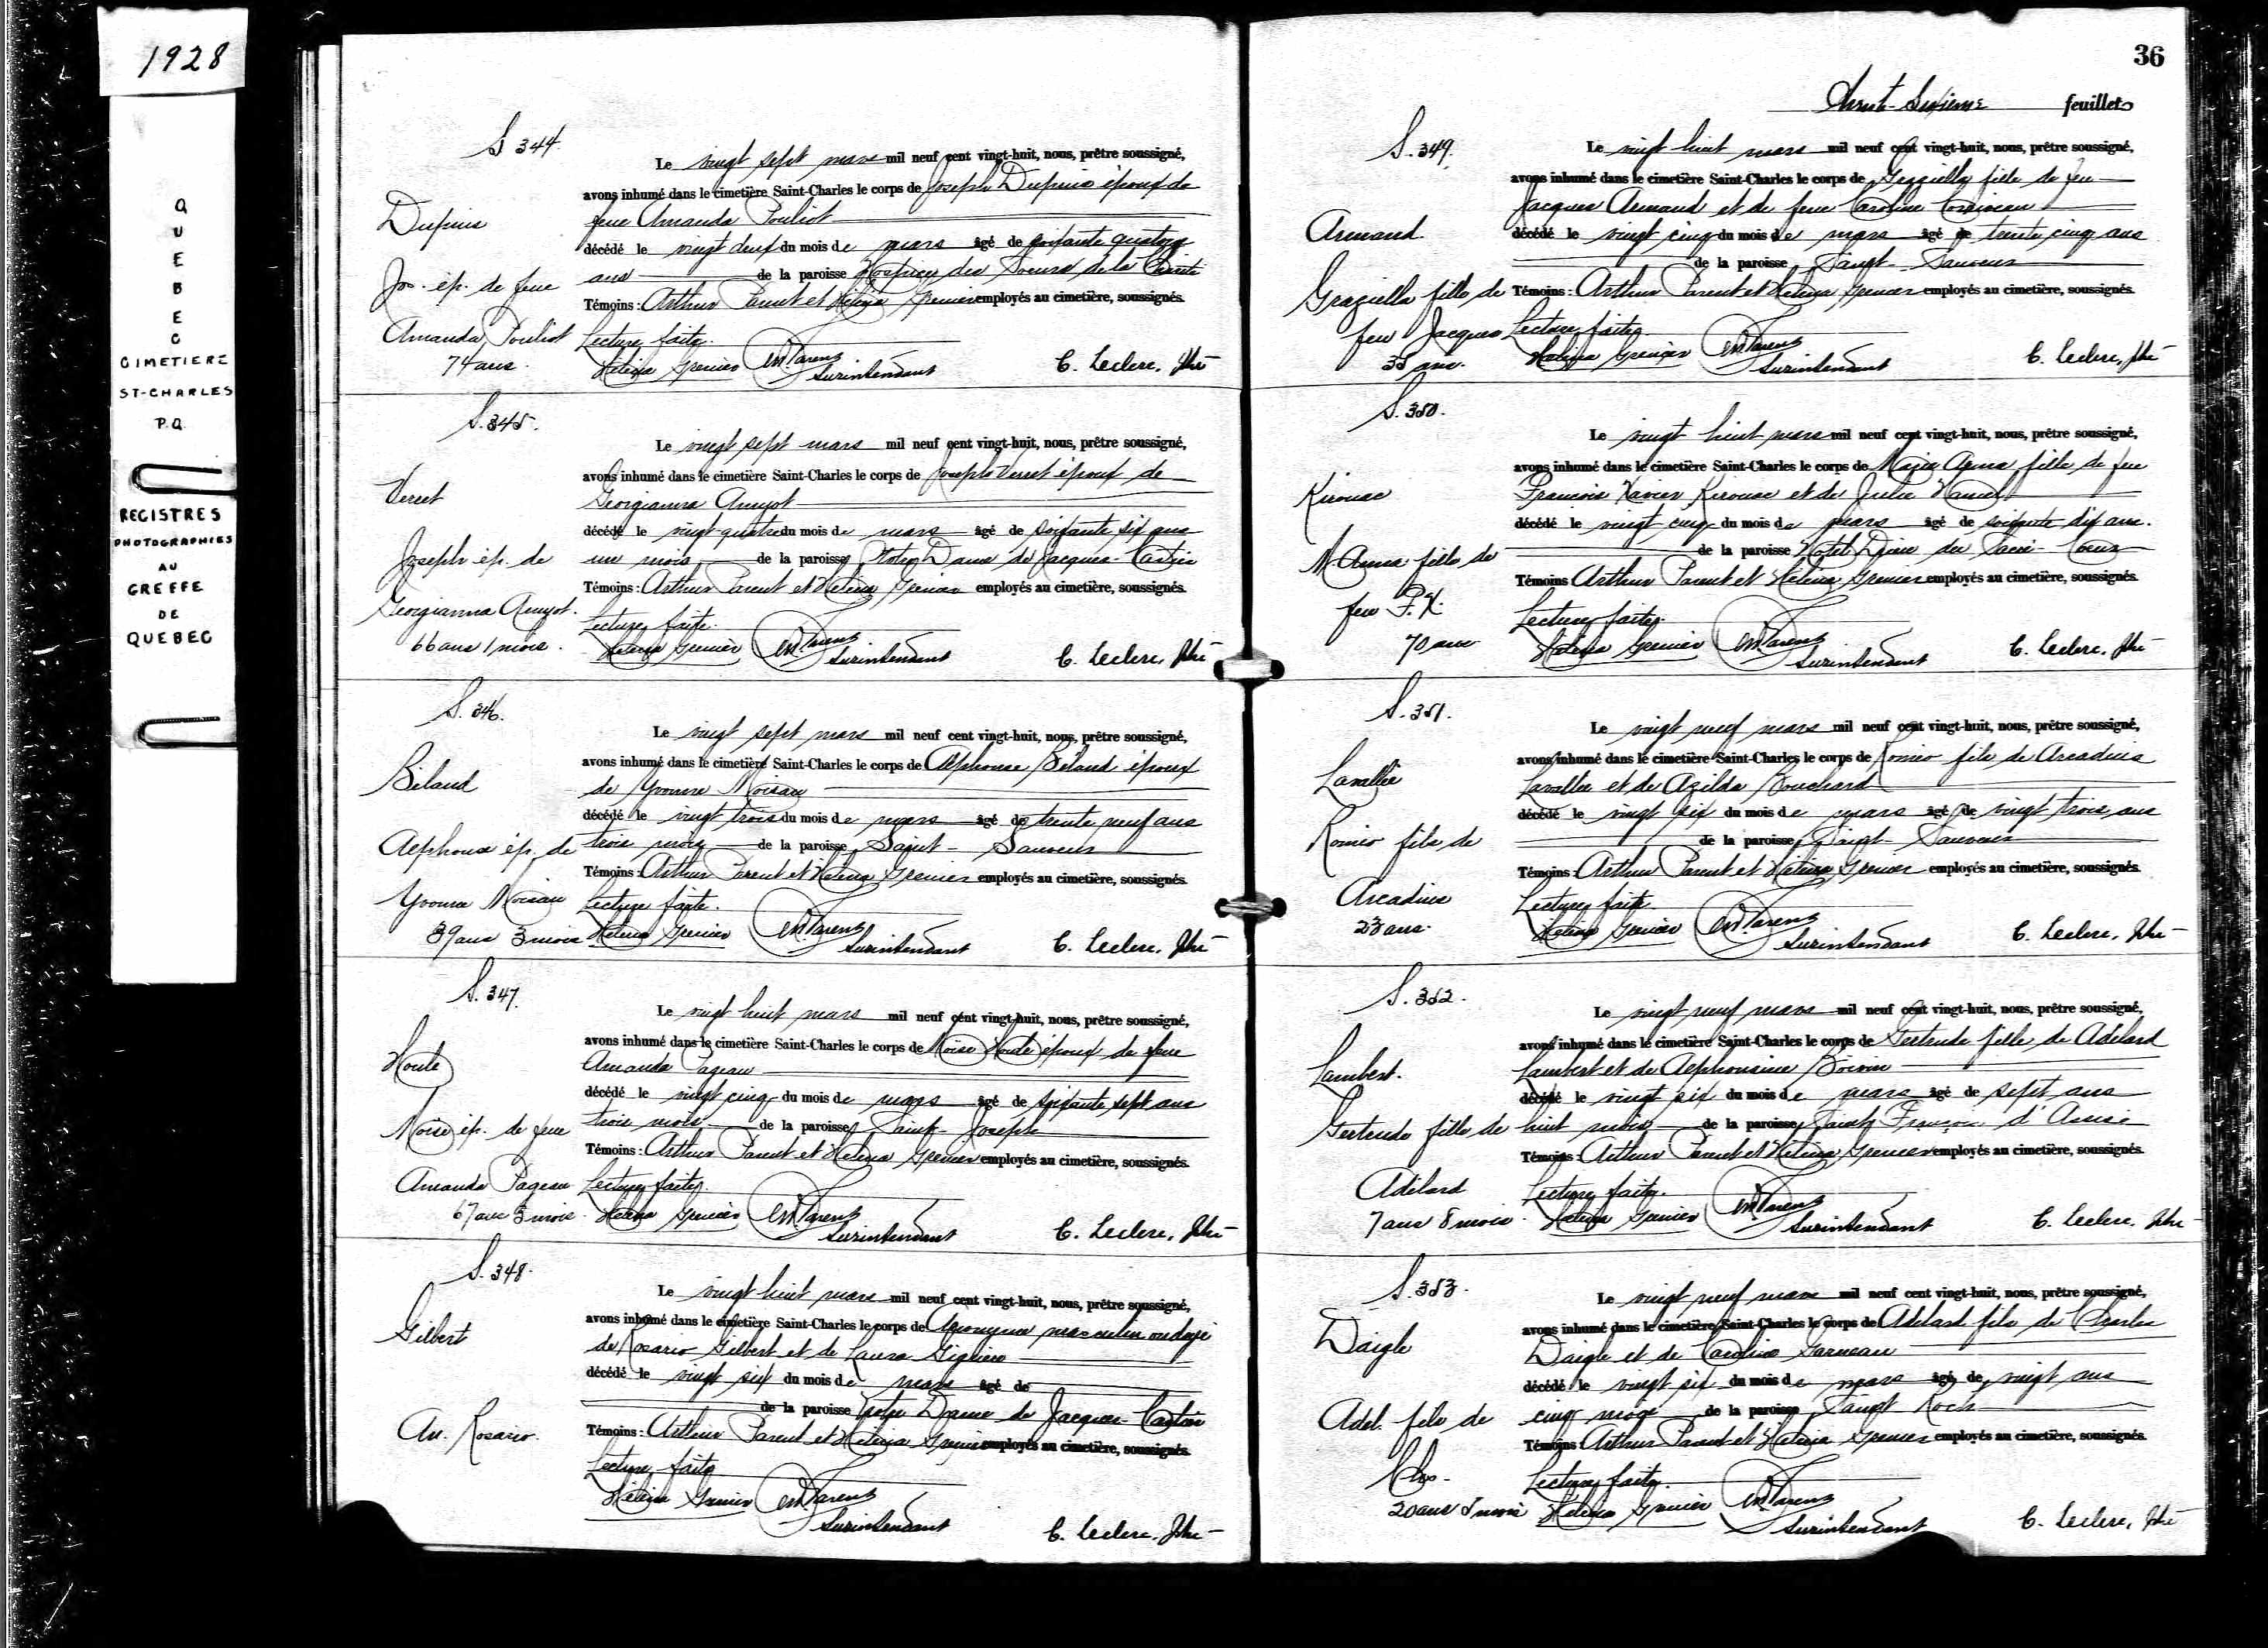 1928
QUEBEC
CIMETIERE
ST-CHARLES
P.Q.
REGISTRES
PHOTOGRAPHIES
AU
GREFFE
DE
QUEBEC
S 344.
Le vingt sept mars mil neuf cent vingt-huit, nous, prêtre soussigné,
avons inhumé dans le cimetière Saint-Charles le corps de Joseph Dupuis époux de
Dupuis
feue Amanda Pouliot
décédé le vingt deux du mois de mars âgé de soixante quatorze
Jos. ép. de feue
ans de la paroisse Hospice des Soeurs de la Charité
Témoins : Arthur Parent et Hélèna Grenier employés au cimetière, soussignés.
Amanda Pouliot
Lecture faite.
74 ans.
Hélèna Grenier Parent Surintendant C. Leclerc, Ptre
S. 345.
Le vingt sept mars mil neuf cent vingt-huit, nous, prêtre soussigné,
avons inhumé dans le cimetière Saint-Charles le corps de Joseph Verret époux de
Verret
Georgianna Amyot
décédé le vingt-quatre du mois de mars âgé de soixante six ans
Joseph ép. de
un mois de la paroisse Notre Dame de Jacques-Cartier
Témoins : Arthur Parent et Hélèna Grenier employés au cimetière, soussignés.
Georgianna Amyot.
Lecture faite.
66 ans 1 mois.
Hélèna Grenier Parent Surintendant C. Leclerc, Ptre
S. 346.
Le vingt sept mars mil neuf cent vingt-huit, nous, prêtre soussigné,
avons inhumé dans le cimetière Saint-Charles le corps de Alphonse Béland époux
Béland
de Yvonne Moisan
décédé le vingt trois du mois de mars âgé de trente neuf ans
Alphonse ép. de
trois mois de la paroisse Saint-Sauveur
Témoins : Arthur Parent et Hélèna Grenier employés au cimetière, soussignés.
Yvonne Moisan
Lecture faite.
39 ans 3 mois
Hélèna Grenier Parent Surintendant C. Leclerc, Ptre
S. 347.
Le vingt huit mars mil neuf cent vingt-huit, nous, prêtre soussigné,
avons inhumé dans le cimetière Saint-Charles le corps de Moïse Houle époux de feue
Houle
Amanda Pageau
décédé le vingt cinq du mois de mars âgé de soixante sept ans
Moïse ép. de feue
trois mois de la paroisse Saint-Joseph
Témoins : Arthur Parent et Hélèna Grenier employés au cimetière, soussignés.
Amanda Pageau
Lecture faite.
67 ans 3 mois.
Hélèna Grenier Parent Surintendant C. Leclerc, Ptre
S. 348.
Le vingt huit mars mil neuf cent vingt-huit, nous, prêtre soussigné,
avons inhumé dans le cimetière Saint-Charles le corps de Anonyme masculin ondoyé
Gilbert
de Rosario Gilbert et de Laura
décédé le vingt six du mois de mars âgé de
de la paroisse Notre Dame de Jacques-Cartier
An. Rosario.
Témoins : Arthur Parent et Hélèna Grenier employés au cimetière, soussignés.
Lecture faite
Hélèna Grenier Parent Surintendant C. Leclerc, Ptre
36
Trente-Sixième feuillet
S. 349.
Le vingt huit mars mil neuf cent vingt-huit, nous, prêtre soussigné,
avons inhumé dans le cimetière Saint-Charles le corps de Graziella fille de feu
Armand.
Jacques Armand et de feue Caroline
décédé le vingt cinq du mois de mars âgé de trente cinq ans
de la paroisse Saint-Sauveur
Graziella fille de
Témoins : Arthur Parent et Hélèna Grenier employés au cimetière, soussignés.
feu Jacques
Lecture faite
35 ans.
Hélèna Grenier Parent Surintendant C. Leclerc, Ptre
S. 350.
Le vingt huit mars mil neuf cent vingt-huit, nous, prêtre soussigné,
avons inhumé dans le cimetière Saint-Charles le corps de Marie Anna fille de feu
Kirouac
François Xavier Kirouac et de Julie Hamel
décédé le vingt cinq du mois de mars âgé de soixante dix ans.
M. Anna fille de
de la paroisse Hôtel Dieu du Sacré-Coeur
Témoins Arthur Parent et Hélèna Grenier employés au cimetière, soussignés.
feu F. X.
Lecture faite.
70 ans
Hélèna Grenier Parent Surintendant C. Leclerc, Ptre
S. 351.
Le vingt neuf mars mil neuf cent vingt-huit, nous, prêtre soussigné,
avons inhumé dans le cimetière Saint-Charles le corps de Roméo fils de Arcadius
Lavallée
Lavallée et de Azilda Bouchard
décédé le vingt six du mois de mars âgé de vingt trois ans
Roméo fils de
de la paroisse Saint-Sauveur
Témoins : Arthur Parent et Hélèna Grenier employés au cimetière, soussignés.
Arcadius
Lecture faite.
23 ans.
Hélèna Grenier Parent Surintendant C. Leclerc, Ptre
S. 352.
Le vingt neuf mars mil neuf cent vingt-huit, nous, prêtre soussigné,
avons inhumé dans le cimetière Saint-Charles le corps de Gertrude fille de Adélard
Lambert.
Lambert et de Alphonsine Boivin
décédé le vingt six du mois de mars âgé de sept ans
Gertrude fille de
huit mois de la paroisse Saint François d'Assise
Témoins : Arthur Parent et Hélèna Grenier employés au cimetière, soussignés.
Adélard
Lecture faite.
7 ans 8 mois.
Hélèna Grenier Parent Surintendant C. Leclerc, Ptre
S. 353.
Le vingt neuf mars mil neuf cent vingt-huit, nous, prêtre soussigné,
avons inhumé dans le cimetière Saint-Charles le corps de Adélard fils de Charles
Daigle
Daigle et de Caroline Garneau
décédé le vingt six du mois de mars âgé de vingt ans
Adel. fils de
cinq mois de la paroisse Saint Roch
Témoins Arthur Parent et Hélèna Grenier employés au cimetière, soussignés.
Chs.
Lecture faite.
20 ans 5 mois
Hélèna Grenier Parent Surintendant C. Leclerc, Ptre